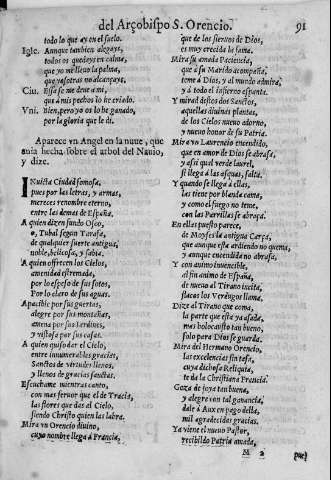 del Arçobispo S. Orencio. 91
todo lo que ay en el suelo.
Igle. Aunque tambien alegays,
todos os quedays en calma,
que yo me lleuo la palma,
que vosotras no alcançays.
Ciu. Essa se me deue a mi,
que a mis pechos lo he criado.
Vni. Bien, pero yo os lo he ganado,
por la gloria que le di.
Aparece vn Angel en la nuue, que
auia hecha sobre el arbol del Nauio,
y dize.
INuicta Ciudad famosa,
pues por las letras, y armas,
mereces renombre eterno,
entre las demas de España.
A quien dizen fundo Osco,
o, Tubal segun Tarafa,
de qualquier suerte antigua,
noble, belicosa, y sabia.
A quien offrecen los Cielos,
amenidad estremada,
por lo espeso de sus sotos,
Por lo claro de sus aguas.
Apacible por sus guertas,
alegre por sus montañas,
amena por sus Iardines,
y vistosa por sus casas.
A quien quiso dar el Cielo,
entre innumerables gracias,
Sanctos de virtudes llenos,
y llenos de gracias sanctas.
Escuchame mientras canto,
con mas feruor que el de Tracia,
las flores que das al Cielo,
siendo Christo quien las labra.
Mira vn Orencio diuino,
cuyo nombre llega a Francia,
que de los sieruos de Dios,
es muy crecida la fama.
Mira su amada Paciencia,
que à su Marido acompaña,
teme à Dios, y al mundo admira,
y à todo el infierno espante.
Y mirad destos dos Sanctos,
aquellas diuinas plantas,
de los Cielos nueuo adorno,
y nueuo honor de su Patria.
Mira vn Laurencio encendido,
que en amor de Dios se abrasa,
y assi qual verde laurel,
si llega à las asquas, salta.
Y quando se llega à ellas,
las tiene por blanda cama,
y como el fuego no teme,
con las Parrillas se abraça.
En ellas puesto parece,
de Moyses la antigua Carça,
que aunque esta ardiendo no quema,
y aunque encendida no abrasa.
Y con animo inuencible,
al fin animo de España,
de nueuo al Tirano incita,
flacos los Verdugos llama.
Dize al Tirano que coma,
la parte que esta ya asada,
mas holocausto tan bueno,
solo para Dios se guarda.
Mira del Hermano Orencio,
las excelencias sin tasa,
cuya dichosa Reliquia,
te da la Christiana Francia.
Goza de joya tan buena,
y alegre con tal ganancia,
dale à Aux en pago della,
mil agradecidas gracias.
Ya viene el nueuo Pastor,
recibildo Patria amada,
M 2 pues